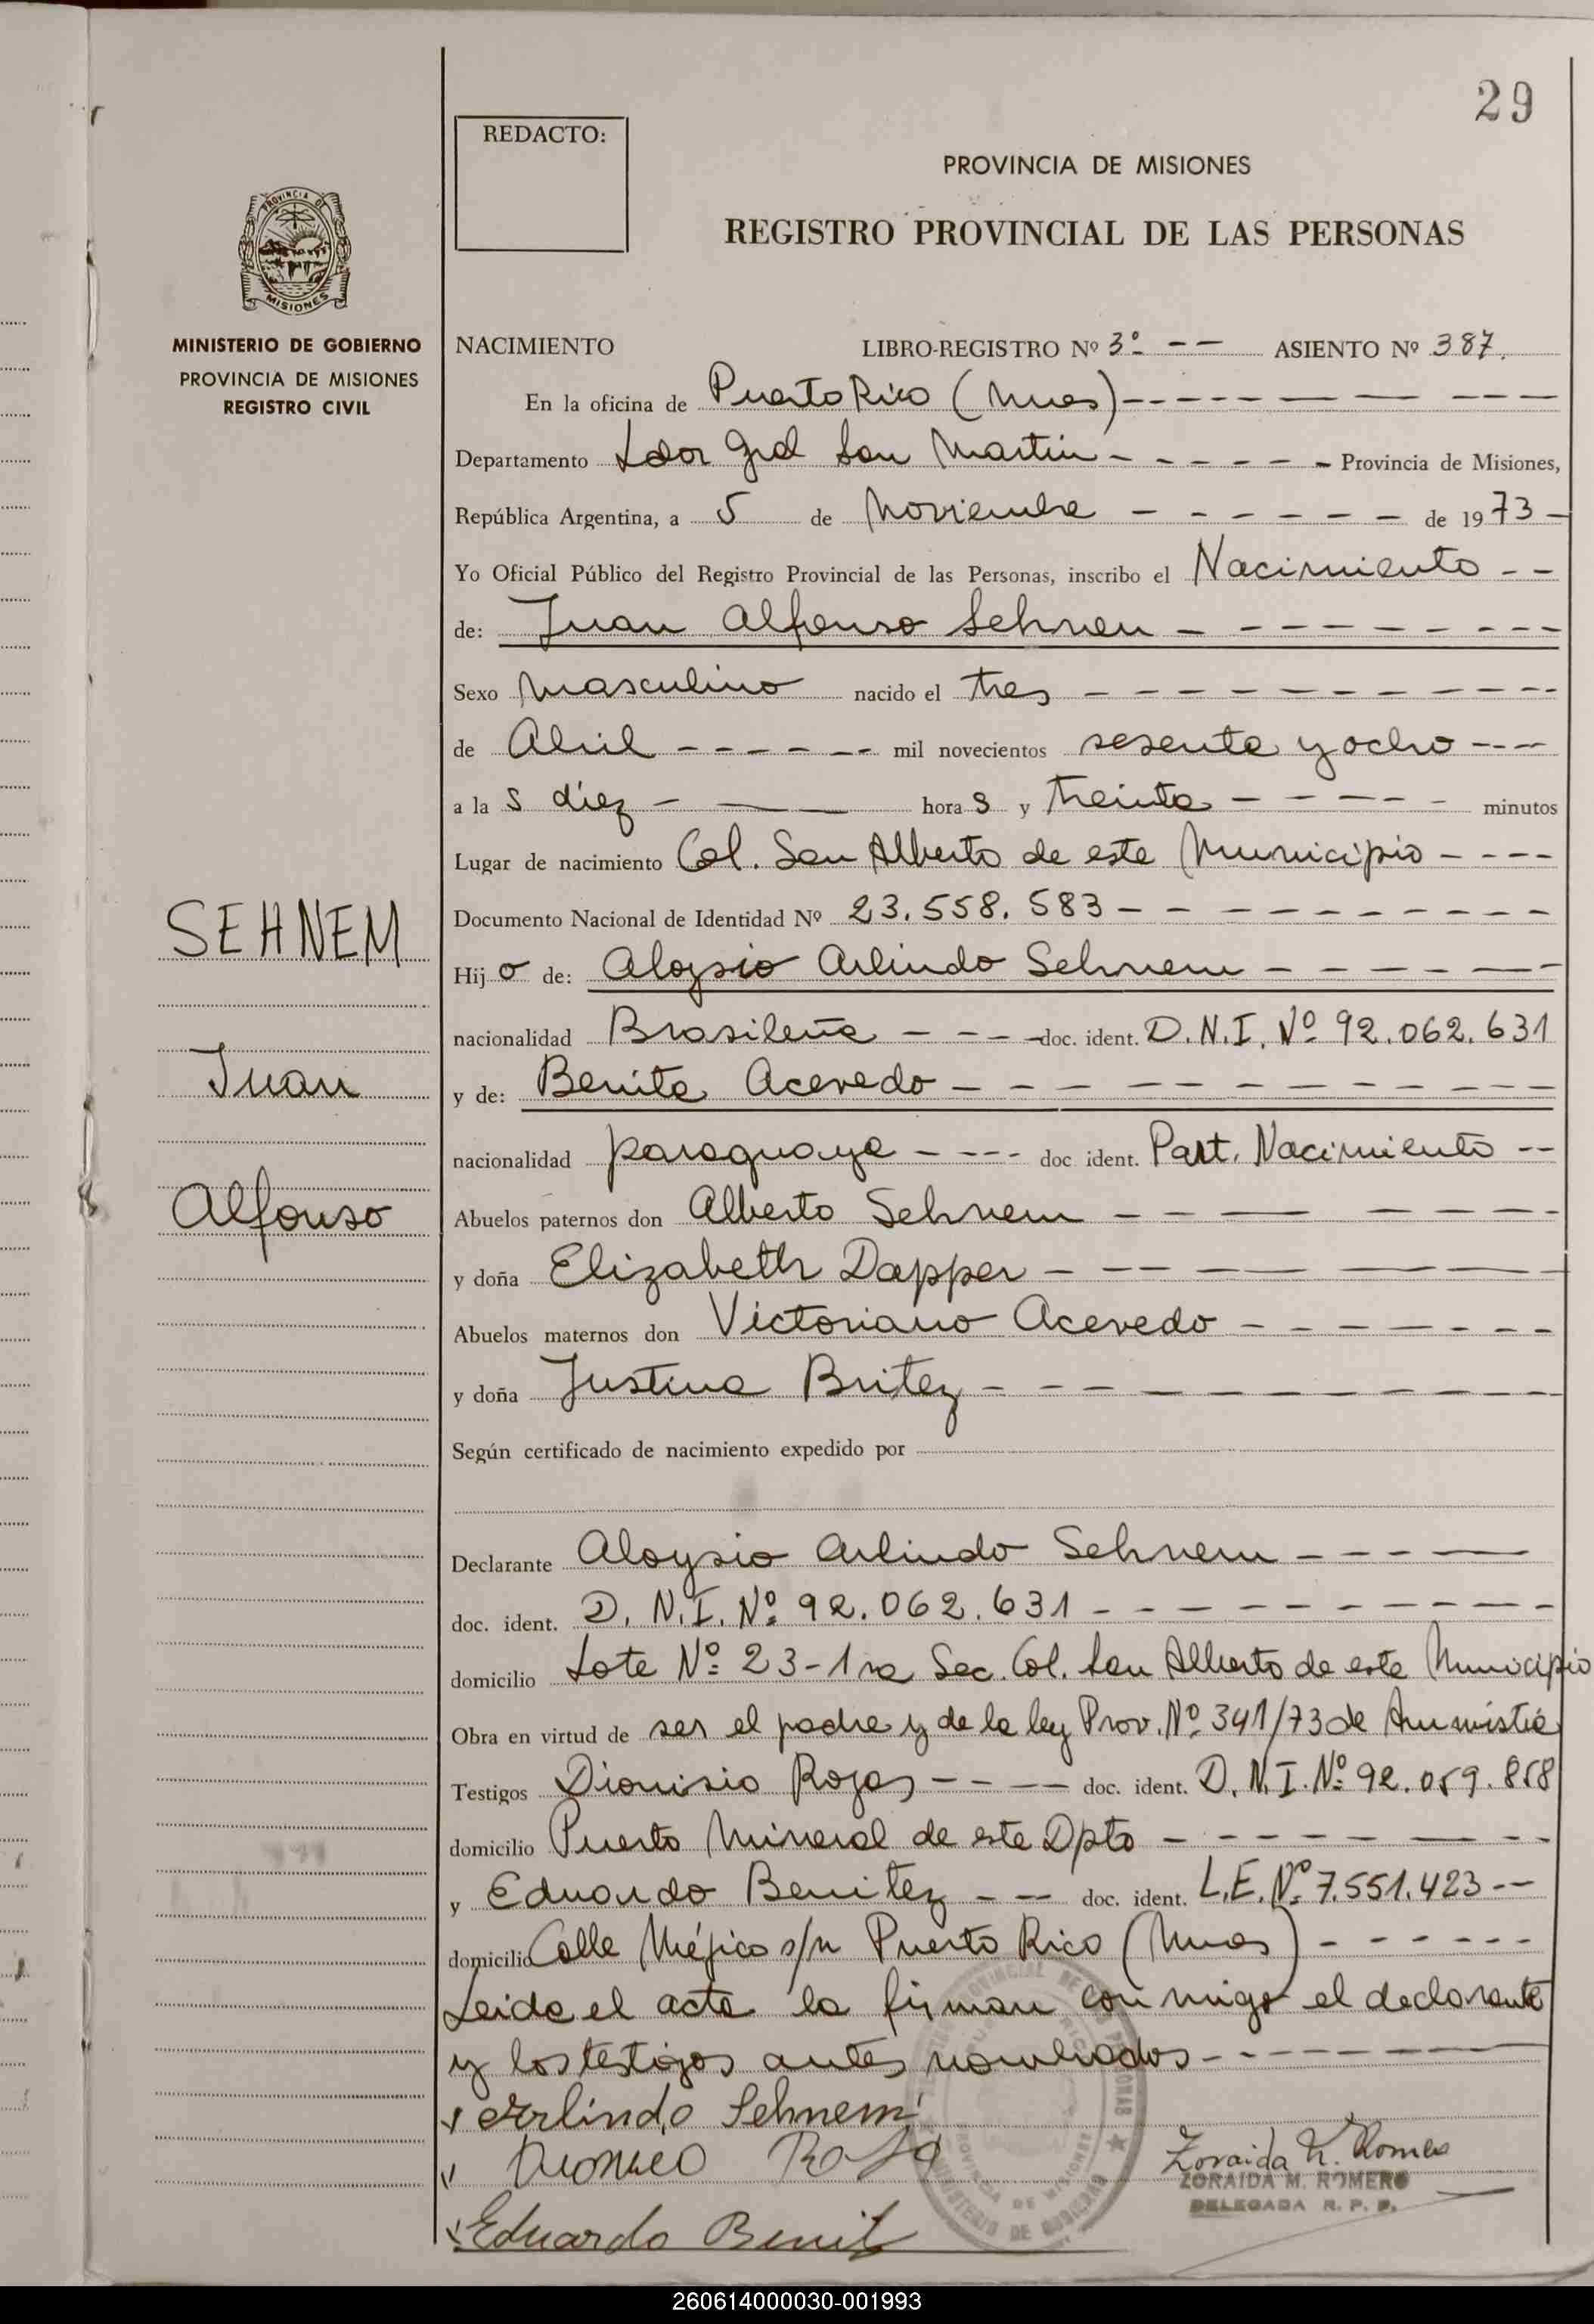 29
REDACTO:
PROVINCIA DE MISIONES
REGISTRO PROVINCIAL DE LAS PERSONAS
PROVINCIA DE
MISIONES
MINISTERIO DE GOBIERNO
PROVINCIA DE MISIONES
REGISTRO CIVIL
NACIMIENTO LIBRO-REGISTRO Nº 3º -- ASIENTO Nº 387.
En la oficina de Puerto Rico (Mnes)
Departamento Ldor Gral San Martin Provincia de Misiones,
República Argentina, a 5 de Noviembre de 1973
Yo Oficial Público del Registro Provincial de las Personas, inscribo el Nacimiento
de: Juan Alfonso Sehnem
Sexo Masculino nacido el tres
de Abril mil novecientos sesenta y ocho
a la s diez hora s y treinta minutos
Lugar de nacimiento Col. San Alberto de este Municipio
SEHNEM
Documento Nacional de Identidad Nº 23.558.583
Hij o de: Aloysio Arlindo Sehnem
nacionalidad Brasileña doc. ident. D.N.I. Nº 92.062.631
Juan
y de: Benita Acevedo
nacionalidad paraguaya doc ident. Part. Nacimiento
Alfonso
Abuelos paternos don Alberto Sehnem
y doña Elizabeth Dapper
Abuelos maternos don Victoriano Acevedo
y doña Justina Britez
Según certificado de nacimiento expedido por
Declarante Aloysio Arlindo Sehnem
doc. ident. D.N.I. Nº 92.062.631
domicilio Lote Nº 23-1ra Sec. Col. San Alberto de este Municipio
Obra en virtud de ser el padre y de la ley Prov. Nº 341/73 de Amnistia
Testigos Dionisio Rojas doc. ident. D.N.I. Nº 92.059.858
domicilio Puerto Mineral de este Dpto
y Eduardo Benitez doc. ident. L.E. Nº 7.551.423
domicilio Calle Méjico s/n Puerto Rico (Mnes)
Leida el acta la firman conmigo el declarante
y los testigos antes nombrados
Arlindo Sehnem
Zoraida M. Romero
ZORAIDA M. ROMERO
DELEGADA R. P. P.
Eduardo Benit
260614000030-001993